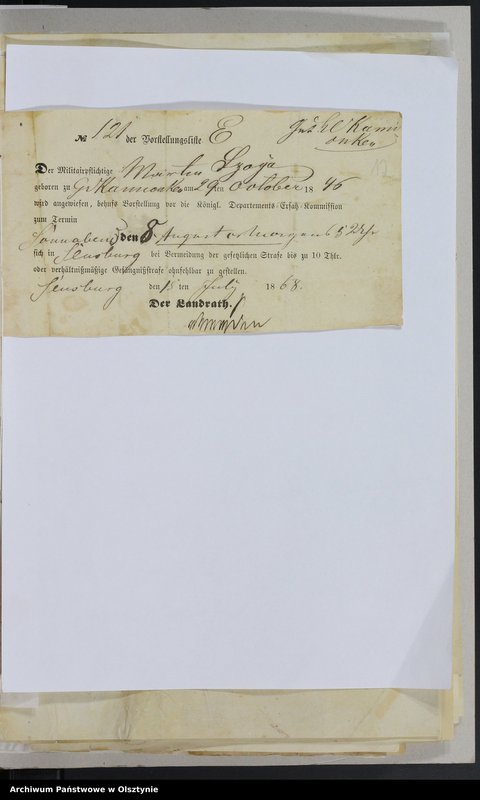 № 121 der Vorstellungsliste E
Gut Kl Kami
onken
12
Der Militairpflichtige Martin Szoga
geboren zu Gr Kamionken am 29 ten October 18 46
wird angewiesen, behufs Vorstellung vor die Königl. Departements-Ersatz-Kommission
zum Termin
Sonnabend den 8 August er Morgens 5 Uhr
sich in Sensburg bei Vermeidung der gesetzlichen Strafe bis zu 10 Thlr.
oder verhältnißmäßige Gefängnißstrafe ohnfehlbar zu gestellen.
Sensburg den 15 ten July 18 68.
Der Landrath.
Archiwum Państwowe w Olsztynie